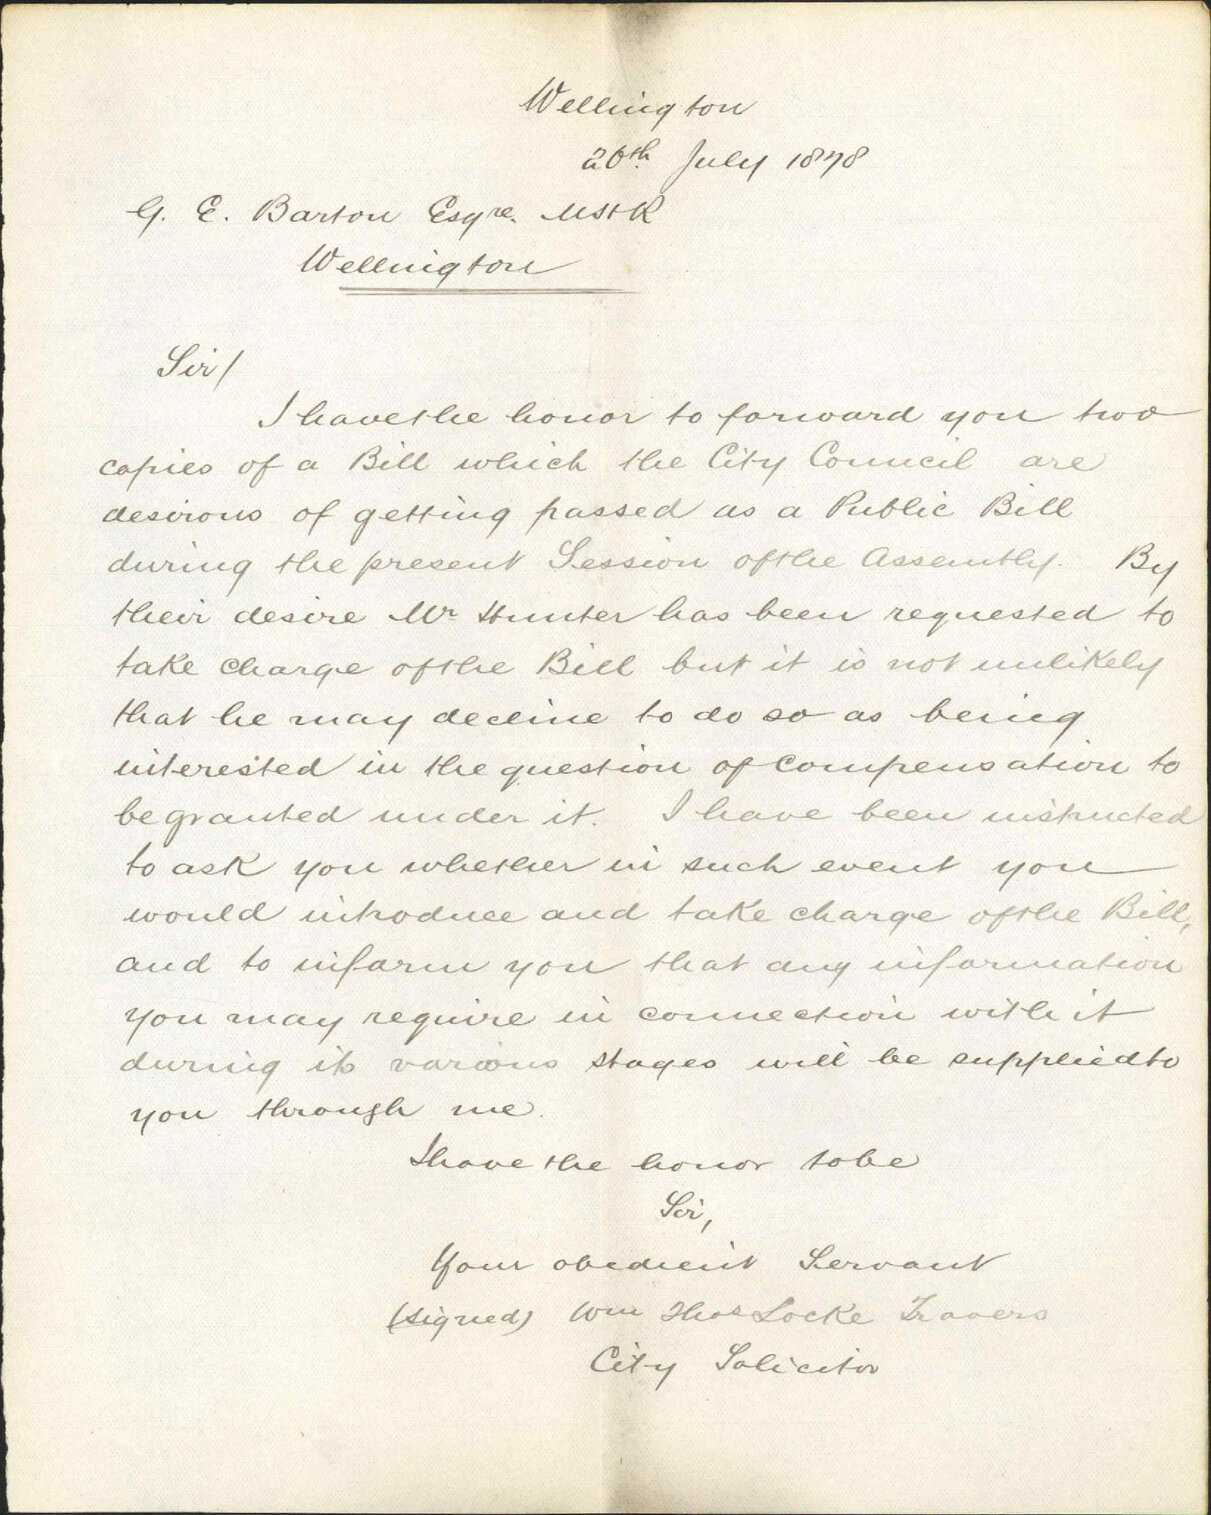 Wellington
26th July 1878
G. E. Barton Esqre. MHR
Wellington
Sir/
I have the honor to forward you two
copies of a Bill which the City Council are
desirous of getting passed as a Public Bill
during the present Session of the Assembly. By
their desire Mr Hunter has been requested to
take charge of the Bill but it is not unlikely
that he may decline to do so as being
interested in the question of compensation to
be granted under it. I have been instructed
to ask you whether in such event you
would introduce and take charge of the Bill,
and to inform you that any information
you may require in connection with it
during its various stages will be supplied to
you through me.
I have the honor to be
Sir,
Your obedient Servant
(signed) Wm Thos Locke Travers
City Solicitor